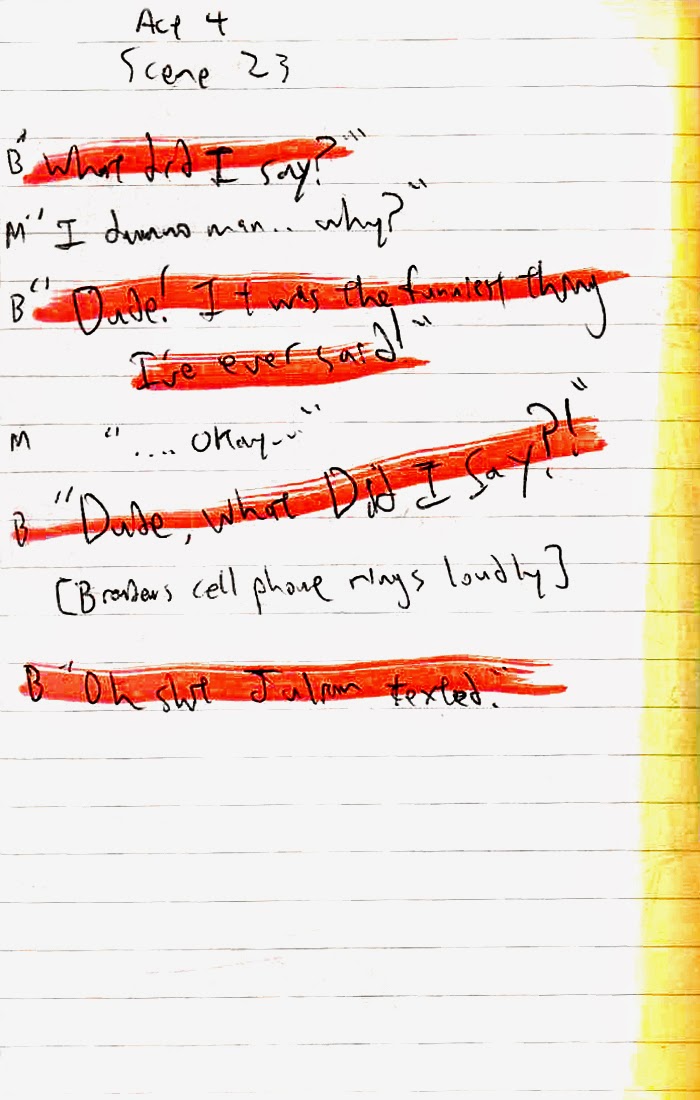 Act 4
Scene 23
B "What did I say?"
M "I dunno man.. why?"
B "Dude! It was the funniest thing
I've ever said!"
M ".... Okay..."
B "Dude, what Did I Say?!"
[ cell phone rings loudly]
B "Oh shit Julian texted."